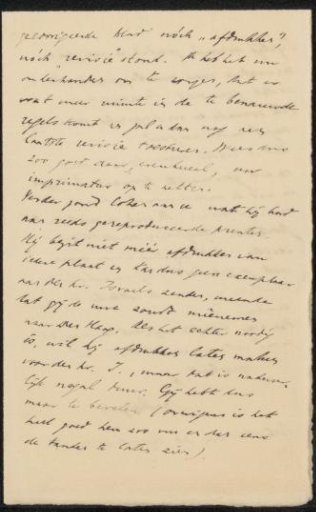 gecorrigeerde blad nóch „afdrukken",
nóch „revisie" stond. Ik heb het nu
onderhanden om te zorgen, dat er
wat meer ruimte in de te benauwde
regels komt en zal u dan nog een
laatste revisie toesturen. Wees dus
zoo goed daar, eventueel, uw
imprimatur op te zetten.
Verder zond Cohen aan ce wat hij had
aan reeds gereproduceerde prenten
Hij bezit niet méér afdrukken van
iedere plaat en kan dus geen exemplaar
aan den hr. Israels zenden, meende
dat gij de uwe zoudt
naar den Haag. Als het echter noodig
is, wil hij afdrukken laten maken
voor den hr. I., maar dat is natuur-
lijk nogal duur. Gij hebt dus
maar te bevelen (overigens is het
heel goed hem zoo nu en dan eens
de tanden te laten zien).